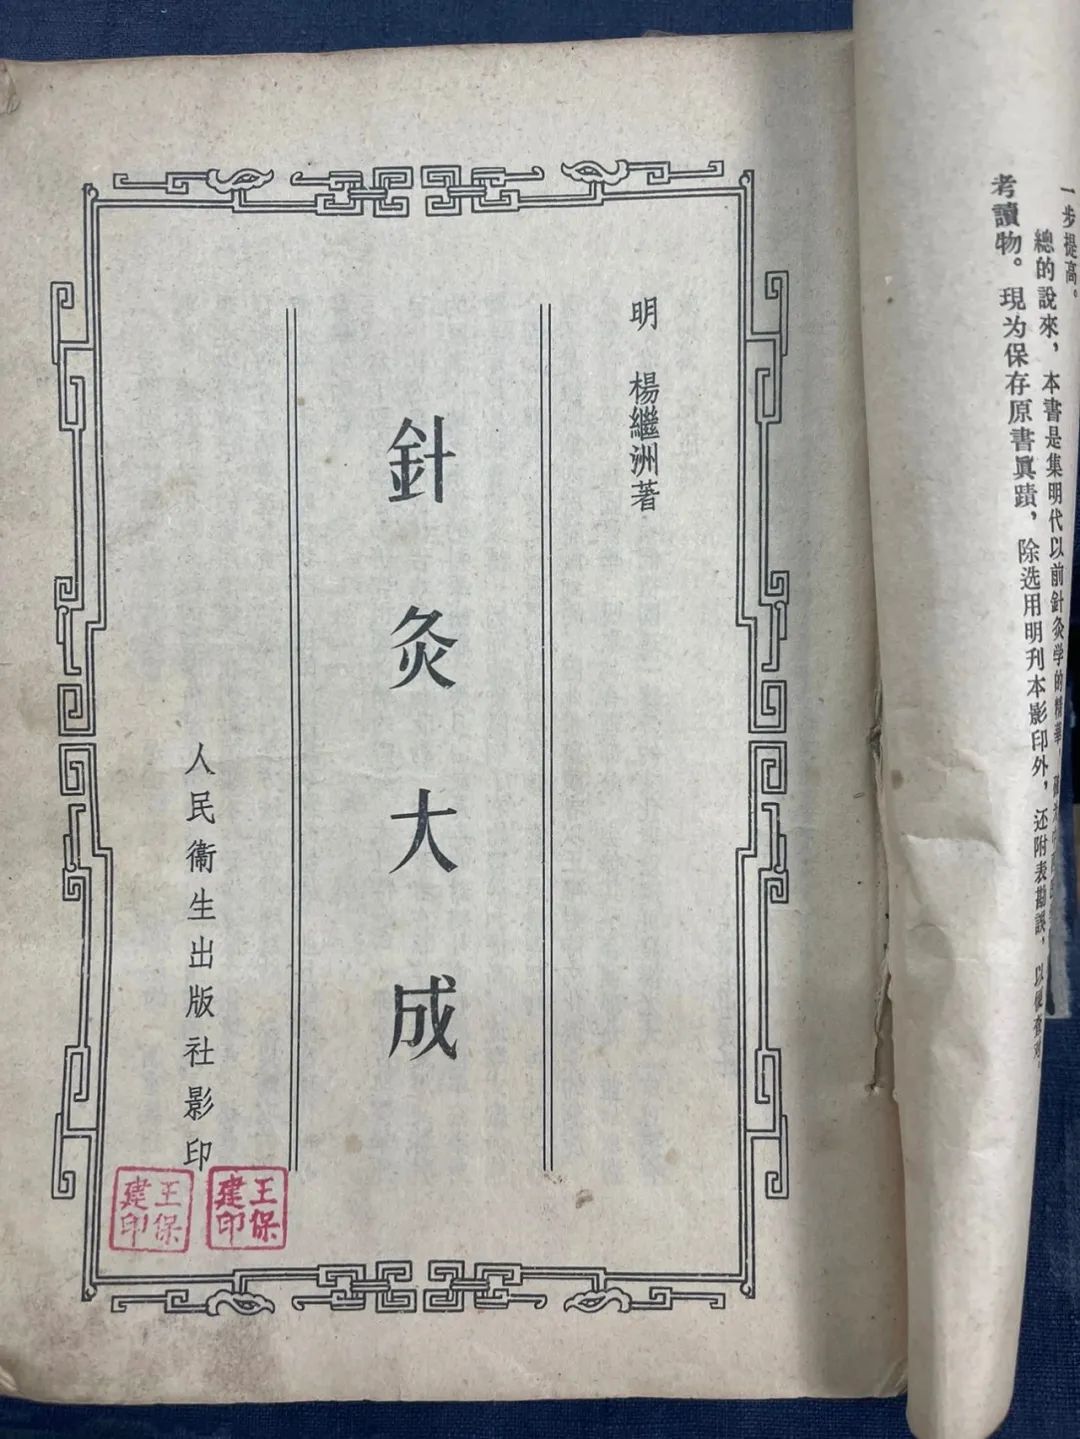 一步提高。
總的說來，本書是集明代以前針灸学的精華，
考讀物。現为保存原書眞蹟，除选用明刊本影印外，还附表勘誤，以便查对。
明 楊繼洲著
針灸大成
人民衞生出版社影印
王保建印
王保建印